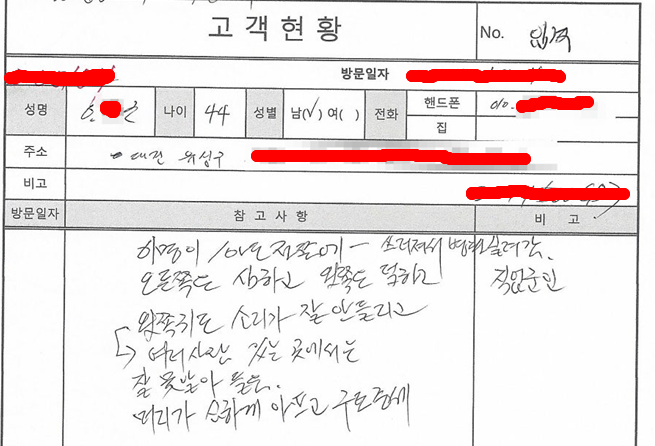 고객현황
No.
방문일자
성명 나이 44 성별 남(√) 여( ) 전화 핸드폰 010.
집
주소 대전 유성구
비고
방문일자 참고사항 비고
이명이 10년 전쯤에 - 쓰러져서 병원 실려감.
오른쪽도 심하고 왼쪽도 덜하고 직업군인
왼쪽귀도 소리가 잘 안들리고
→ 여러사람 있는 곳에서는
잘 못알아 들음.
머리가 심하게 아프고 구토증세